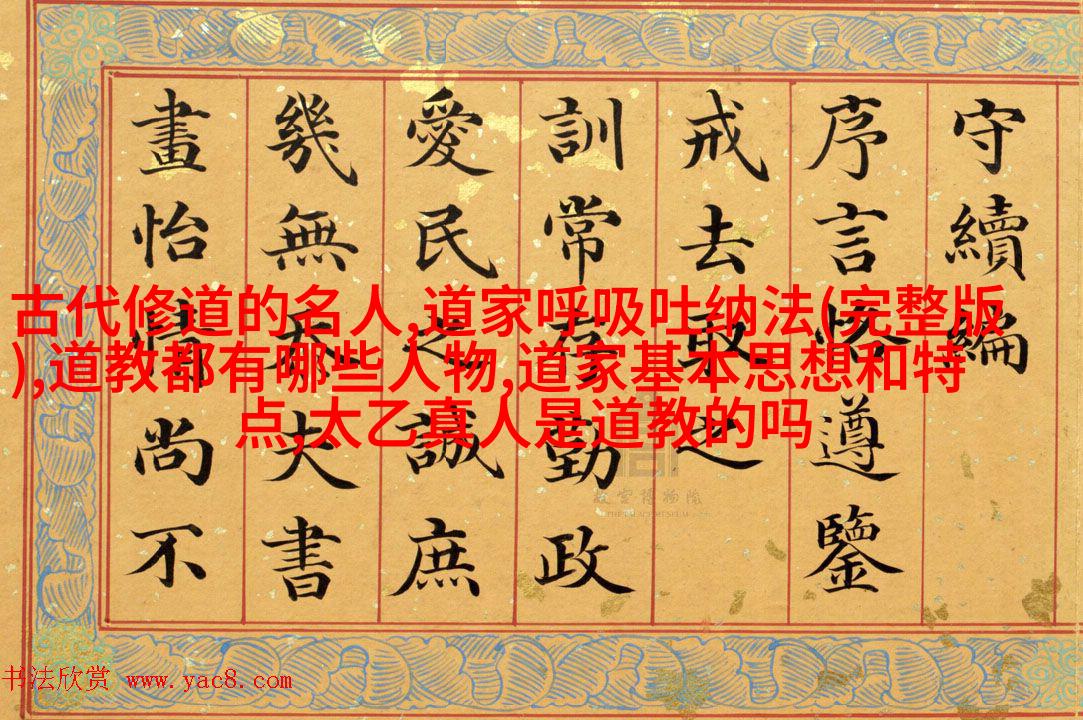 守續編
序言恪遵鑒
戒去取之
訓常存勤政
愛民之誠庶
幾無忝夫書
畫怡情尚不
古代修道的名人,道家呼吸吐纳法(完整版
),道教都有哪些人物,道家基本思想和特
点,太乙真人是道教的吗
故宮博物院
THE PALACE MUSEUM
书法欣赏 www.yac8.com